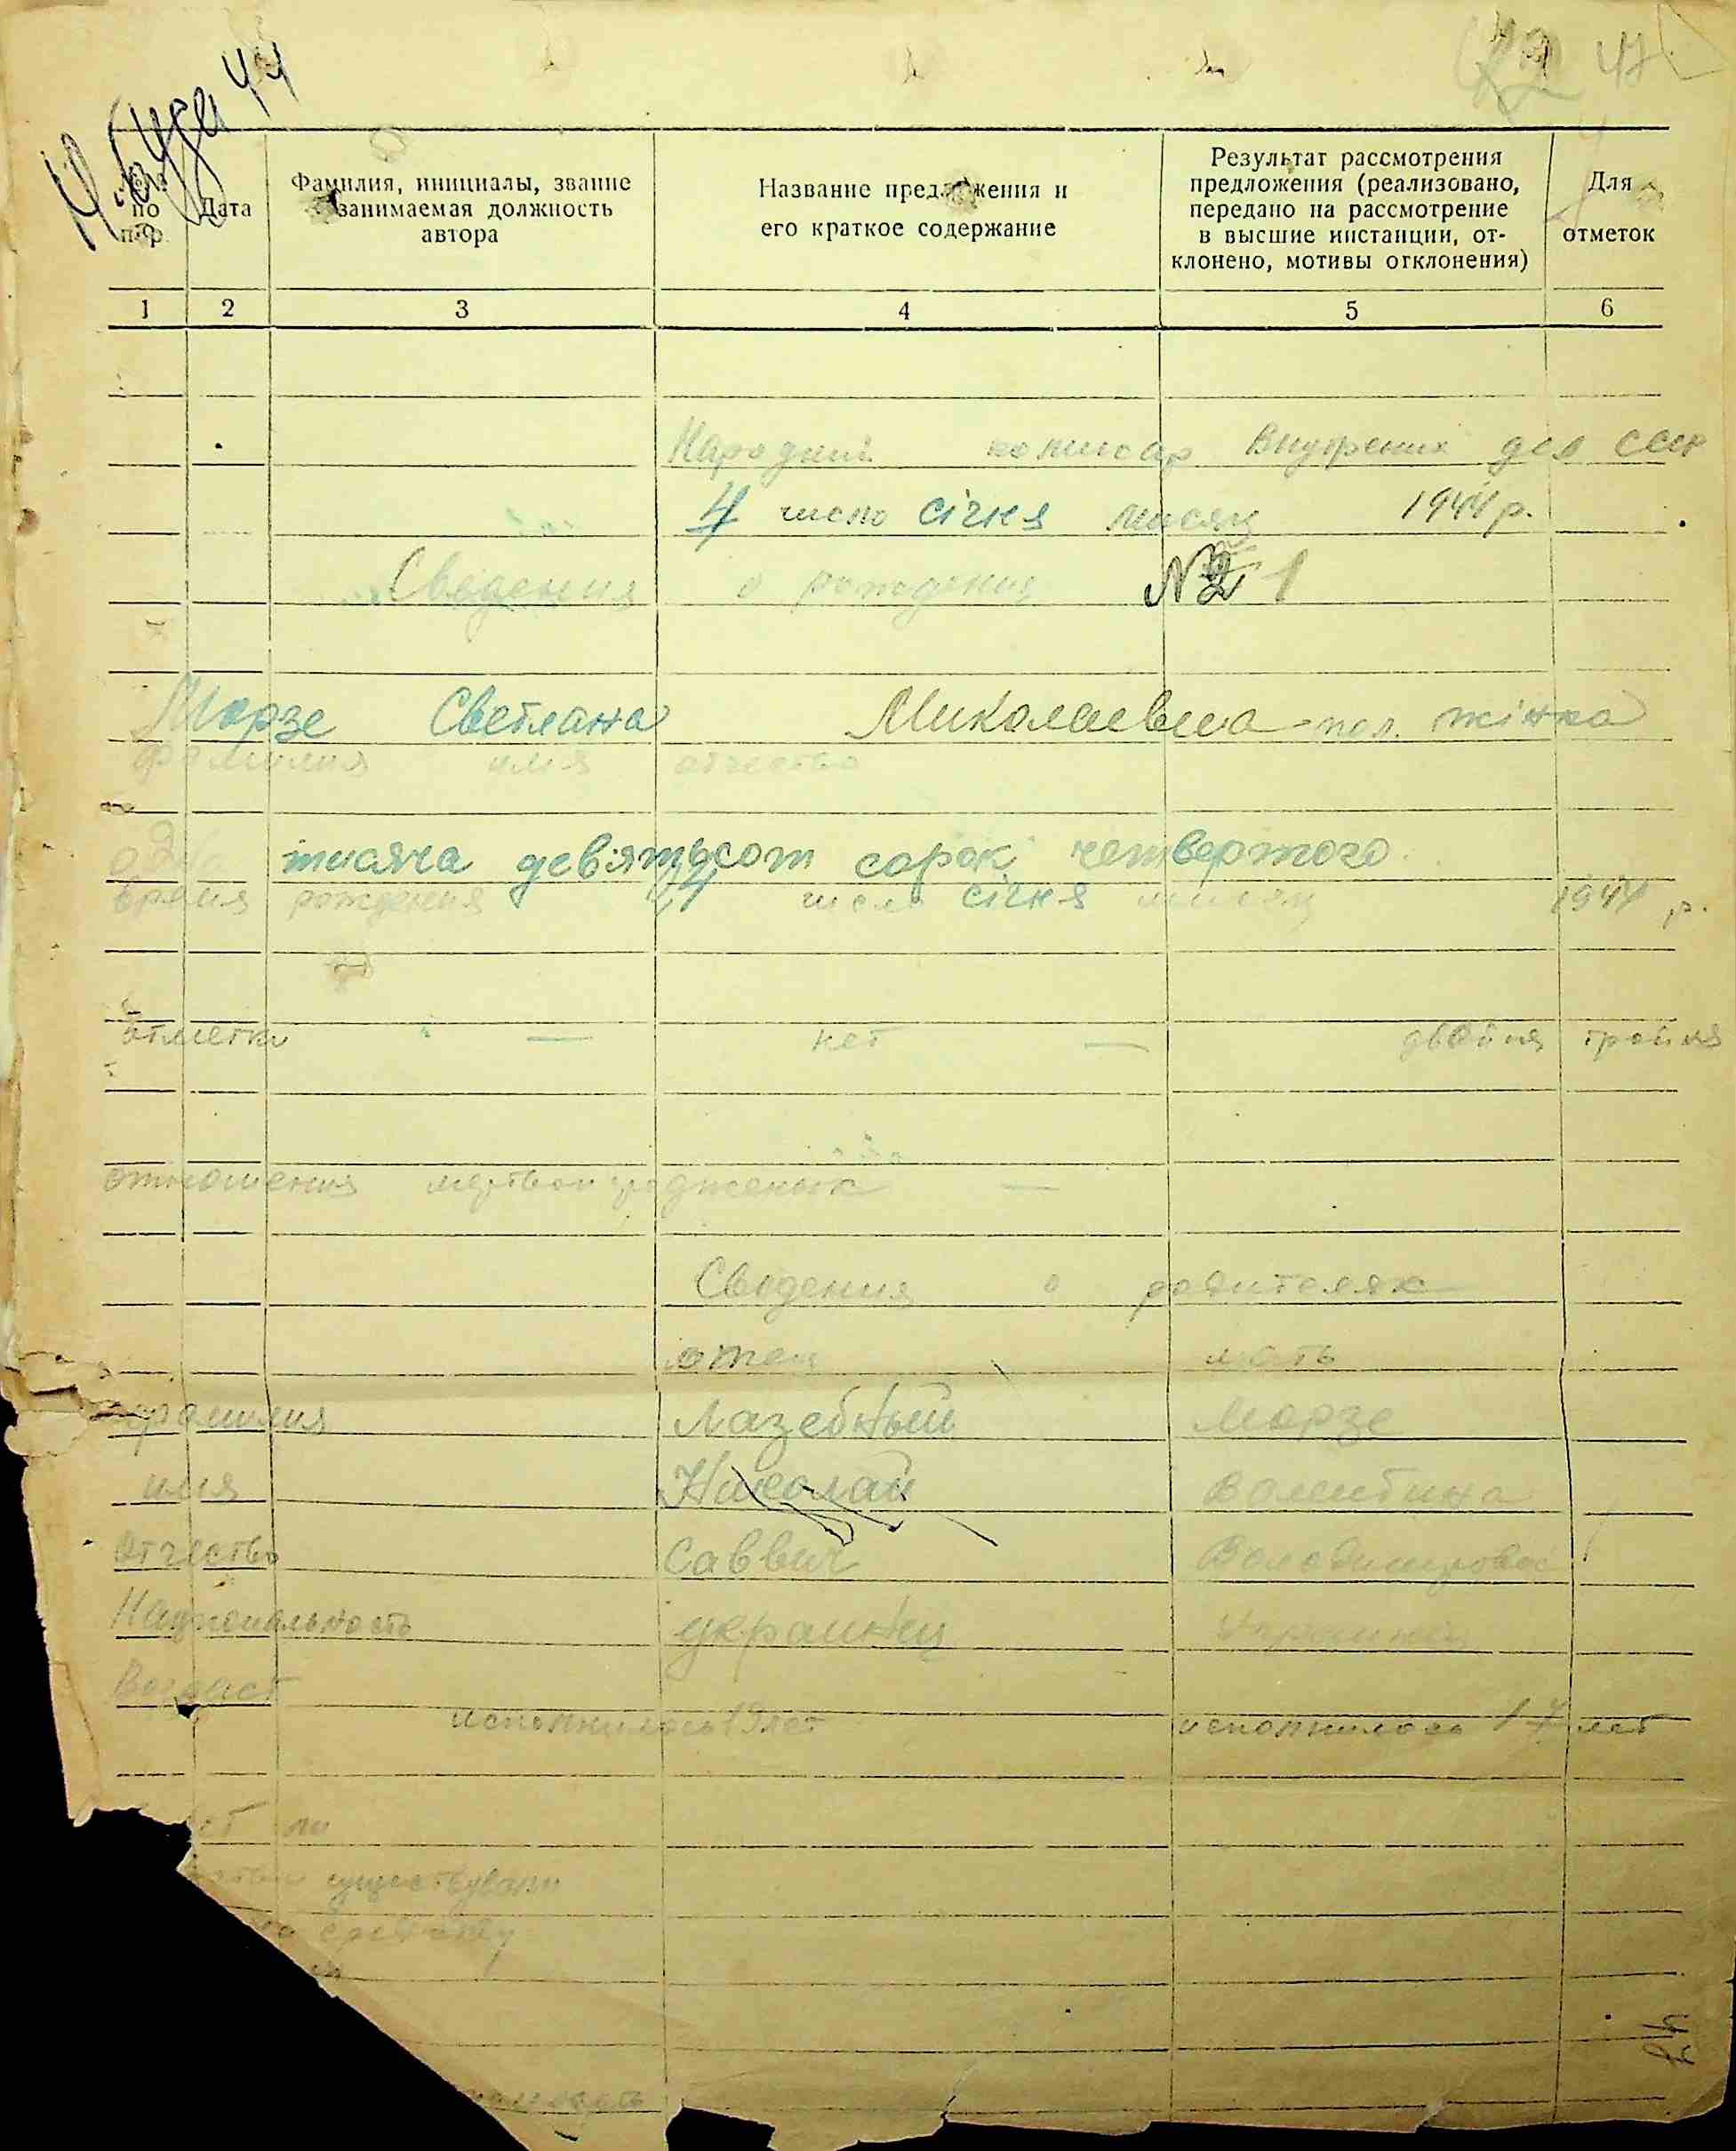 Н. Буда 44
47
№№ по пор.
Дата
Фамилия, инициалы, звание занимаемая должность автора
Название предложения и его краткое содержание
Результат рассмотрения предложения (реализовано, передано на рассмотрение в высшие инстанции, отклонено, мотивы отклонения)
Для отметок
1 2 3 4 5 6
Народний комисар Внутрених дел
4 число січня месяц 1944 р.
Сведения о рождении № 1
Морзе Светлана Миколаевна пол. жінка
фамилия имя отчество
одна тисяча девятьсот сорок четвертого
время рождения число січня месяц 1944 р.
отметки — нет — двойня тройня
отношения —
Сведения о родителях
отец мать
фамилия Лазебный Морзе
имя Николай Валентина
отчество Саввич Володимировна
Национальность украинец
Возраст
исполнилось 19 лет исполнилось 17 лет
ли
47